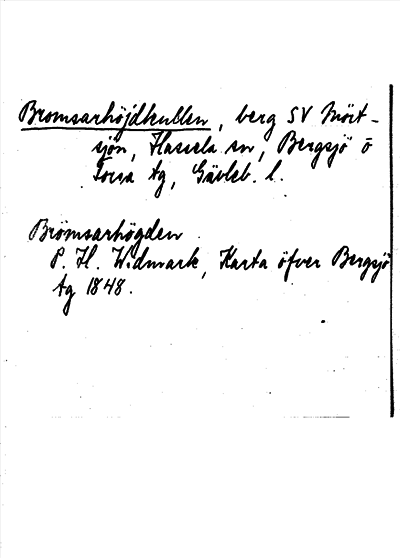 Bromsarhöjdkullen, berg SV Mört-
sjön, Hassela sn, Bergsjö ö
Forsa tg, Gävleb. l.
Brömsarhögden
P. H. Widmark, Karta öfver Bergsjö
tg 1848.